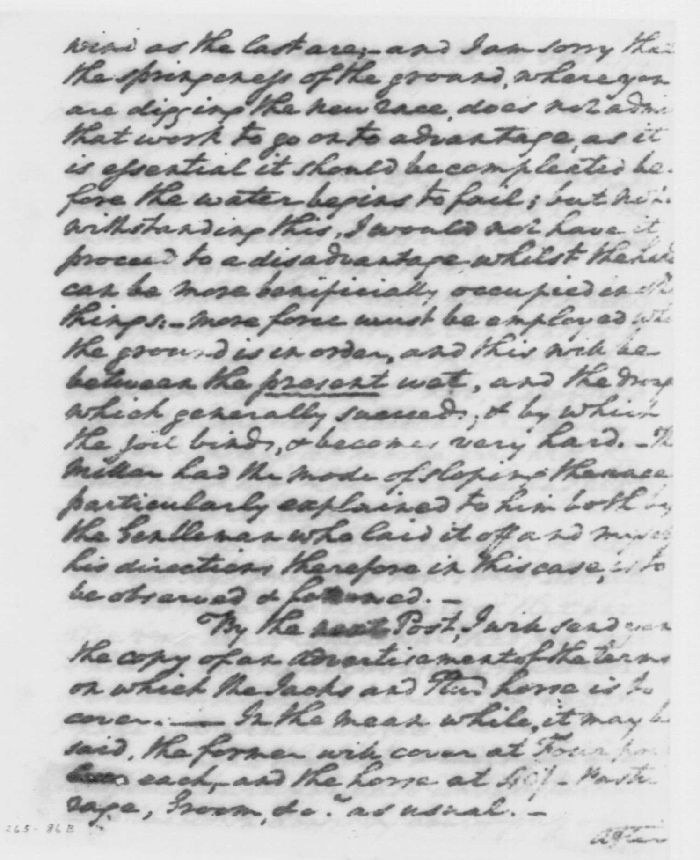 wind as the last are; – and I am sorry that
the springeness of the ground, where you
are digging the new race, does not adm
that work to go on to advantage, as it
is essential it should be compleated be-
fore the water begins to fail; but not-
withstanding this, I would not have it
proceed to a disadvantage whilst the hand
can be more benificially occupied in oth
things: – more force must be employed whe
the ground is in order, and this will be
between the present wet, and the drop
which generally succeeds; & by which
the soil binds, & becomes very hard. – Th
Miller had the mode of sloping the race
particularly explained to him both by
the Gentleman who laid it off and myself
his directions therefore in this case, is to
be observed & followed. –
By the next Post, I will send you
the copy of an advertisement of the terms
on which the Jacks and Stud horse is to
cover. — In the mean while, it may be
said, the former will cover at Four po
each, and the horse at 40/- Pastu
rage, Groom, &c.a as usual. –
265-86B
After